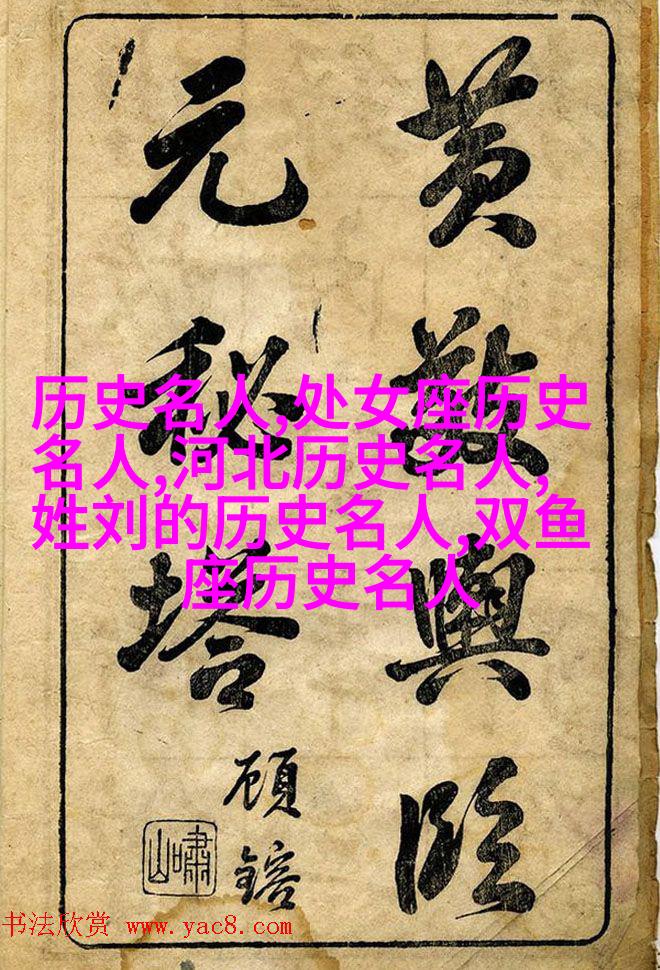 黄敬輿臨
元秘塔
顧鎔
嘯山
历史名人,处女座历史
名人,河北历史名人,
姓刘的历史名人,双鱼
座历史名人
书法欣赏 www.yac8.com